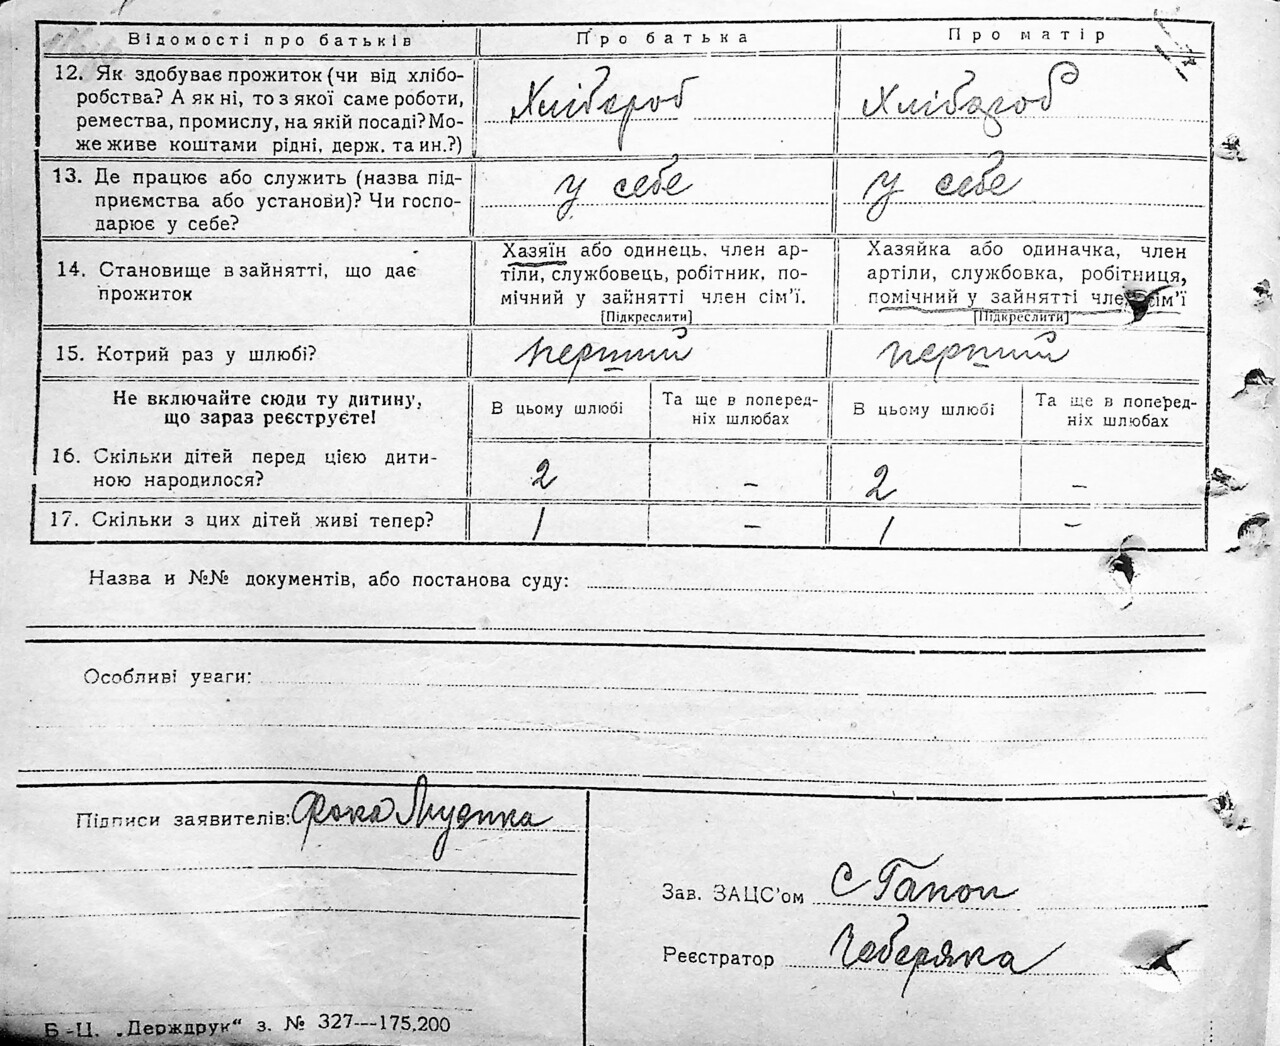 Відомості про батьків
Про батька
Про матір
12. Як здобуває прожиток (чи від хлібо-
робства? А як ні, то з якої саме роботи,
ремества, промислу, на якій посаді? Мо-
же живе коштами рідні, держ. та ин.?)
Хлібороб
Хлібороб
13. Де працює або служить (назва під-
приємства або установи)? Чи госпо-
дарює у себе?
у себе
у себе
14. Становище в зайнятті, що дає
прожиток
Хазяїн або одинець, член ар-
тіли, службовець, робітник, по-
мічний у зайнятті член сім'ї.
[Підкреслити]
Хазяйка або одиначка, член
артіли, службовка, робітниця,
помічний у зайнятті член сім'ї
[Підкреслити]
15. Котрий раз у шлюбі?
перший
перший
Не включайте сюди ту дитину,
що зараз реєструєте!
В цьому шлюбі
Та ще в поперед-
ніх шлюбах
В цьому шлюбі
Та ще в поперед-
ніх шлюбах
16. Скільки дітей перед цією дити-
ною народилося?
2
–
2
–
17. Скільки з цих дітей живі тепер?
1
–
1
–
Назва и №№ документів, або постанова суду:
Особливі уваги:
Підписи заявителів: Фока
Зав. ЗАЦС'ом С Гапон
Реєстратор Чеберяка
Б-Ц. „Держдрук“ з. № 327—175.200